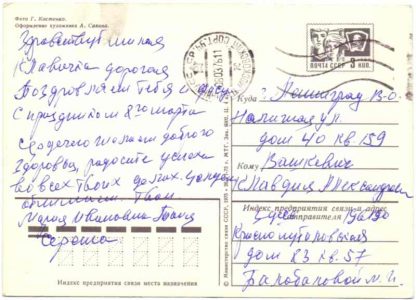 Фото Г. Костенко.
Оформление художника А. Савина.
Здравствуй милая
Клавочка дорогая
Поздравляем тебя
с праздником 8го марта
сердечно желаем доброго
здоровья, радости успеха
во всех твоих делах. Целуем
обнимаем. Твои
Мария Ивановна Таня
Сережа.
ПОЧТА СССР 3 КОП.
Куда г. Ленинград В-О.
Наличная ул.
дом 40 кв 159
Кому Вашкевич
Клавдия Александровна
Индекс предприятия связи и адрес отправителя
Краснопутиловская
дом 83 кв. 57
Балобановой М. И.
Индекс предприятия связи места назначения
© Министерство связи СССР, 1975